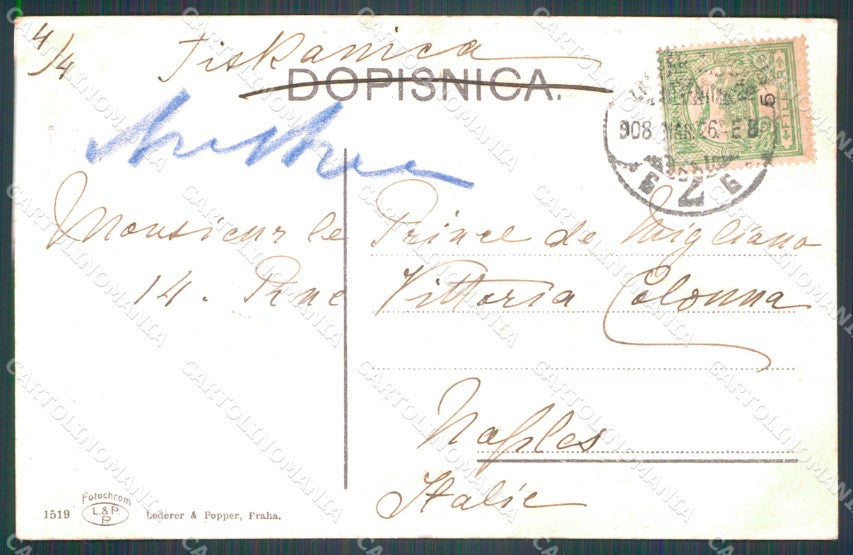 4/4
Tiskanica
DOPISNICA.
908 MAR 26
5
7
Monsieur le Prince de Migliano
14. Rue Vittoria Colonna
Naples
Italie
1519 Fotochrom L&P P Lederer & Popper, Praha.
CARTOLINOMANIA